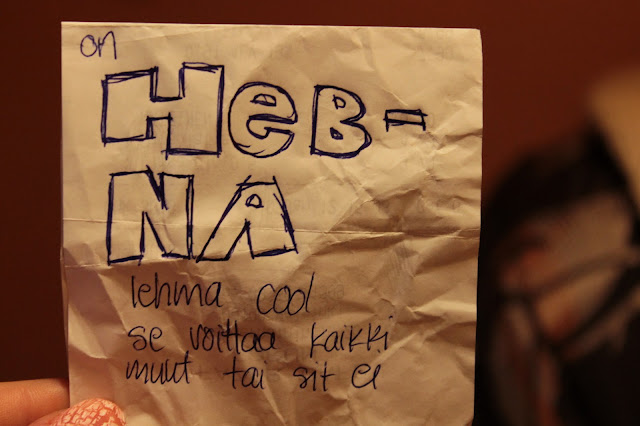 on
HeB-
NA
lehma cool
se voittaa kaikki
muut tai sit ei